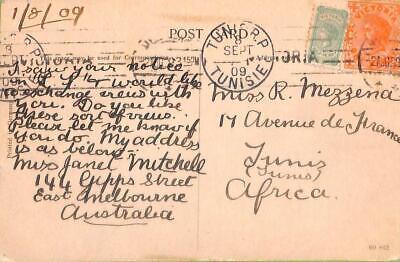 1/8/09
POST CARD
TUNIS R.P.
SEPT
09
TUNISIE
VICTORIA
I saw your notice
in I. & I would like
to exchange views with
you. Do you like
these sort of views.
Please let me know if
you do. My address
is as below.
Miss Janet Mitchell
144 Gipps Street
East Melbourne
Australia
Miss R. Mezzena
17 Avenue de France
Tunis
(Tunis)
Africa.